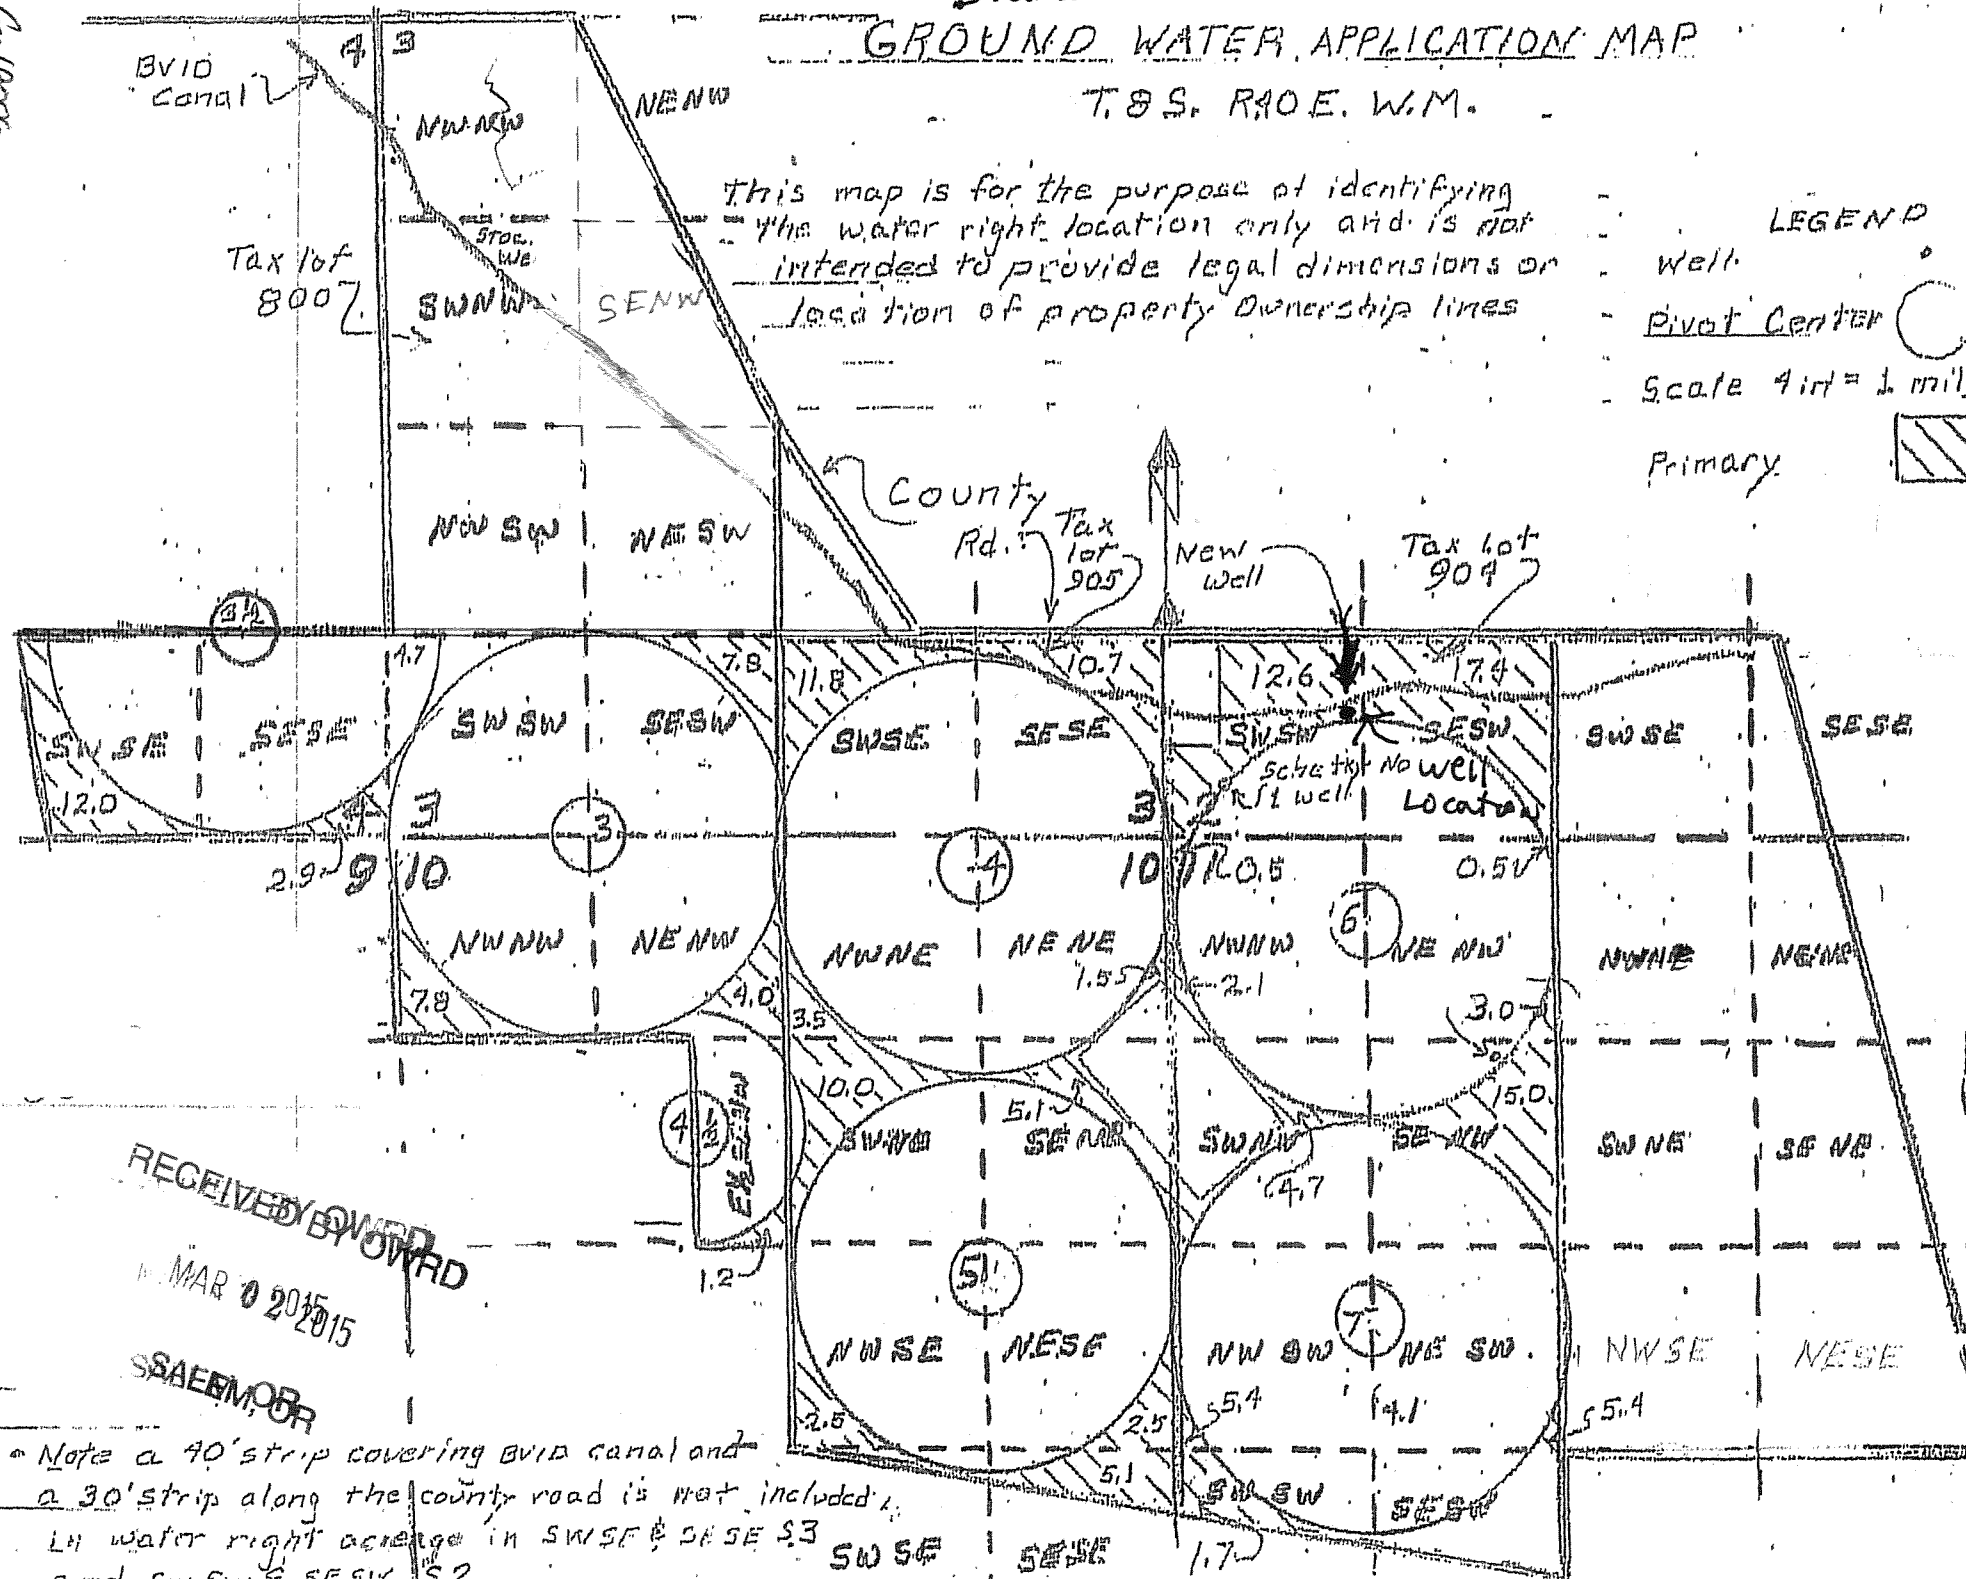 GROUND WATER APPLICATION MAP
T. 8 S. R40 E. W.M.
This map is for the purpose of identifying
the water right location only and is not
intended to provide legal dimensions or
location of property Ownership lines
LEGEND
Well
Pivot Center
Scale 4 in = 1 mil
Primary
BVID
Canal
4 3
NWNW
NENW
Tax lot
800
STOC.
We
SWNW
SENW
NWSW
NESW
County
Rd.
Tax
lot
905
New
Well
Tax Lot
904
3½
4.7
7.8
11.8
10.7
12.6
17.4
SWSE
SESE
SWSW
SESW
SWSE
SESE
SWSW
SESW
SWSE
SESE
12.0
No Well
Location
well
3
3
3
2.9
9 10
4
10 11
0.5
0.5
6
NWNW
NENW
NWNE
NENE
NWNW
NENW
NWNE
NENE
1.55
2.1
7.8
4.0
3.5
3.0
10.0
5.1
15.0
4½
SWNE
SENE
SWNW
SENW
SWNE
SENE
4.7
1.2
5
7
NWSE
NESE
NWSW
NESW
NWSE
NESE
2.5
2.5
5.4
4.1
5.4
5.1
SWSW
SESW
SWSE
SESE
1.7
RECEIVED BY OWRD
MAR 02 2015
SALEM, OR
Note a 40' strip covering BVID canal and
a 30' strip along the county road is not included
in water right acreage in SWSE & SESE S3
and SWSW & SESW S2